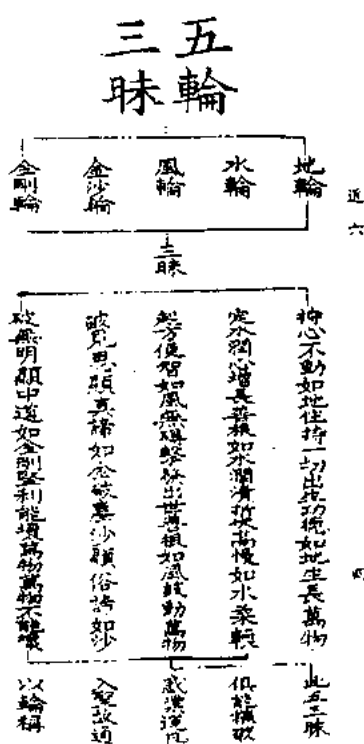 五輪
三昧
地輪
水輪
風輪
金沙輪
金剛輪
三昧
持心不動如地住持一切出生功德如地生長萬物
定水潤心增長善根如水潤漬折伏高慢如水柔軟
起方便智如風無礙擊發出世善根如風鼓動萬物
破見思顯真諦如金破塵沙顯俗諦如沙
破無明顯中道如金剛堅利能壞萬物萬物不能壞
此五三昧
俱能摧破
惑業運凡
入聖故通
以輪稱
六